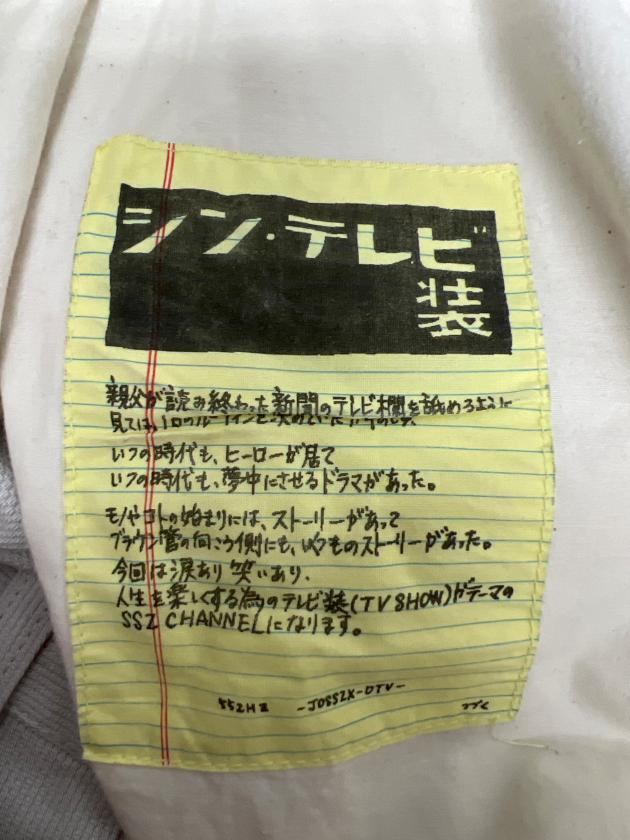 シン・テレビ
装
親父が読み終わった新聞のテレビ欄を舐めるように
見ては、1日のルーティンを決めていた
いつの時代も、ヒーローが居て
いつの時代も、夢中にさせるドラマがあった。
モノやコトの始まりには、ストーリーがあって
ブラウン管の向こう側にも、いくつものストーリーがあった。
今回は涙あり笑いあり、
人生を楽しくする為のテレビ装(TV SHOW)がテーマの
SSZ CHANNELになります。
-JOSSZX-DTV-
つづく